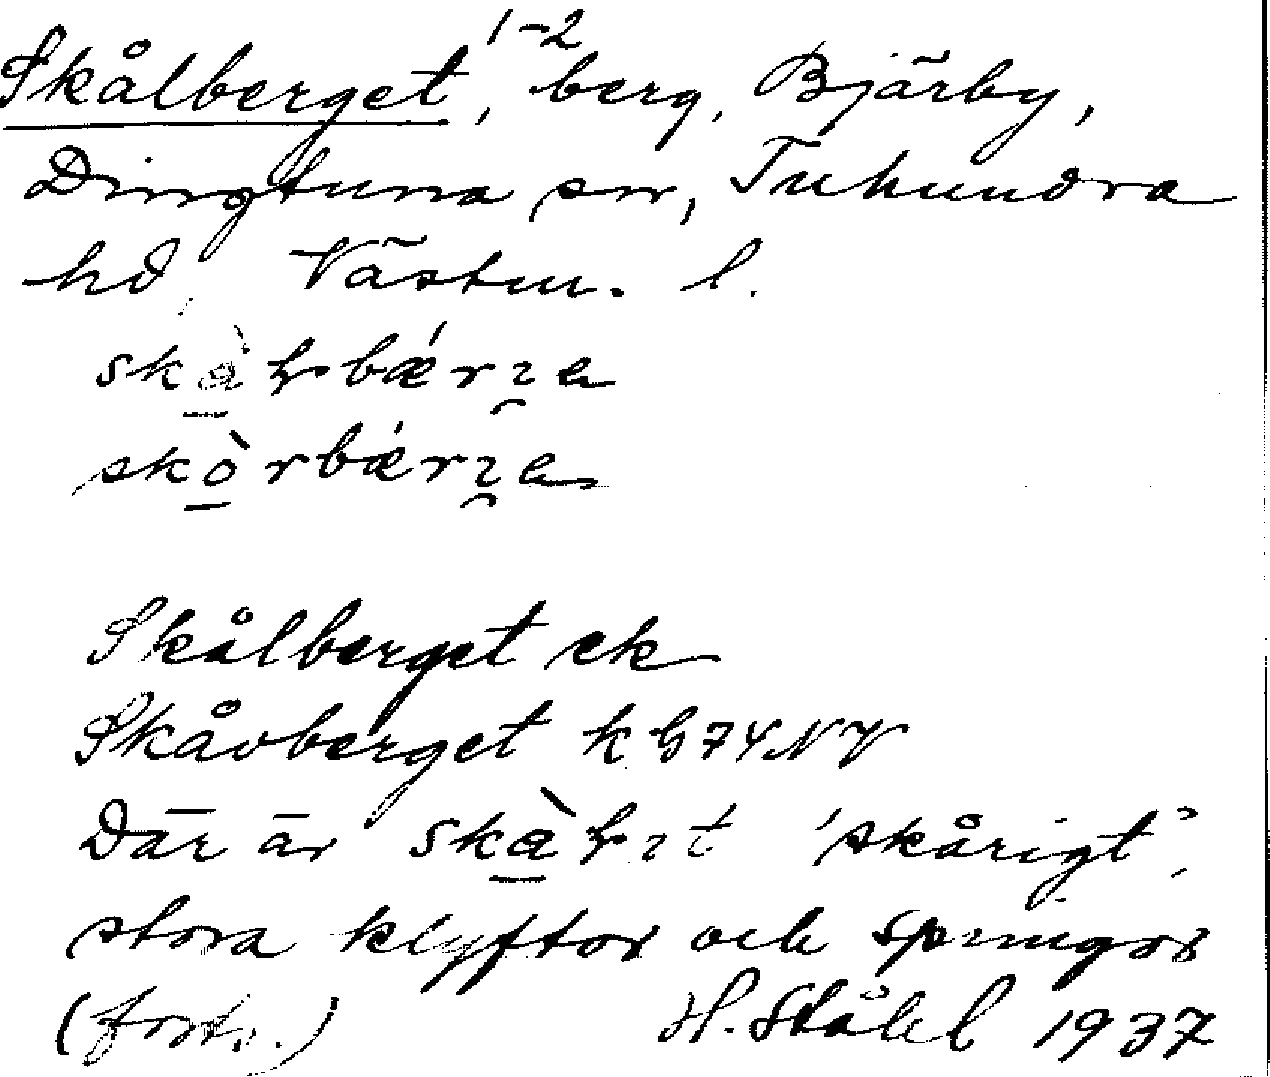 Skålberget¹⁻², berg, Bjärby,
Dingtuna sn, Tuhundra
hd, Västm. l.
Skålberget ek
Skåvberget k G74NV
Där är 'skårigt',
stora klyftor och springor
(forts.) H. Ståhl 1937